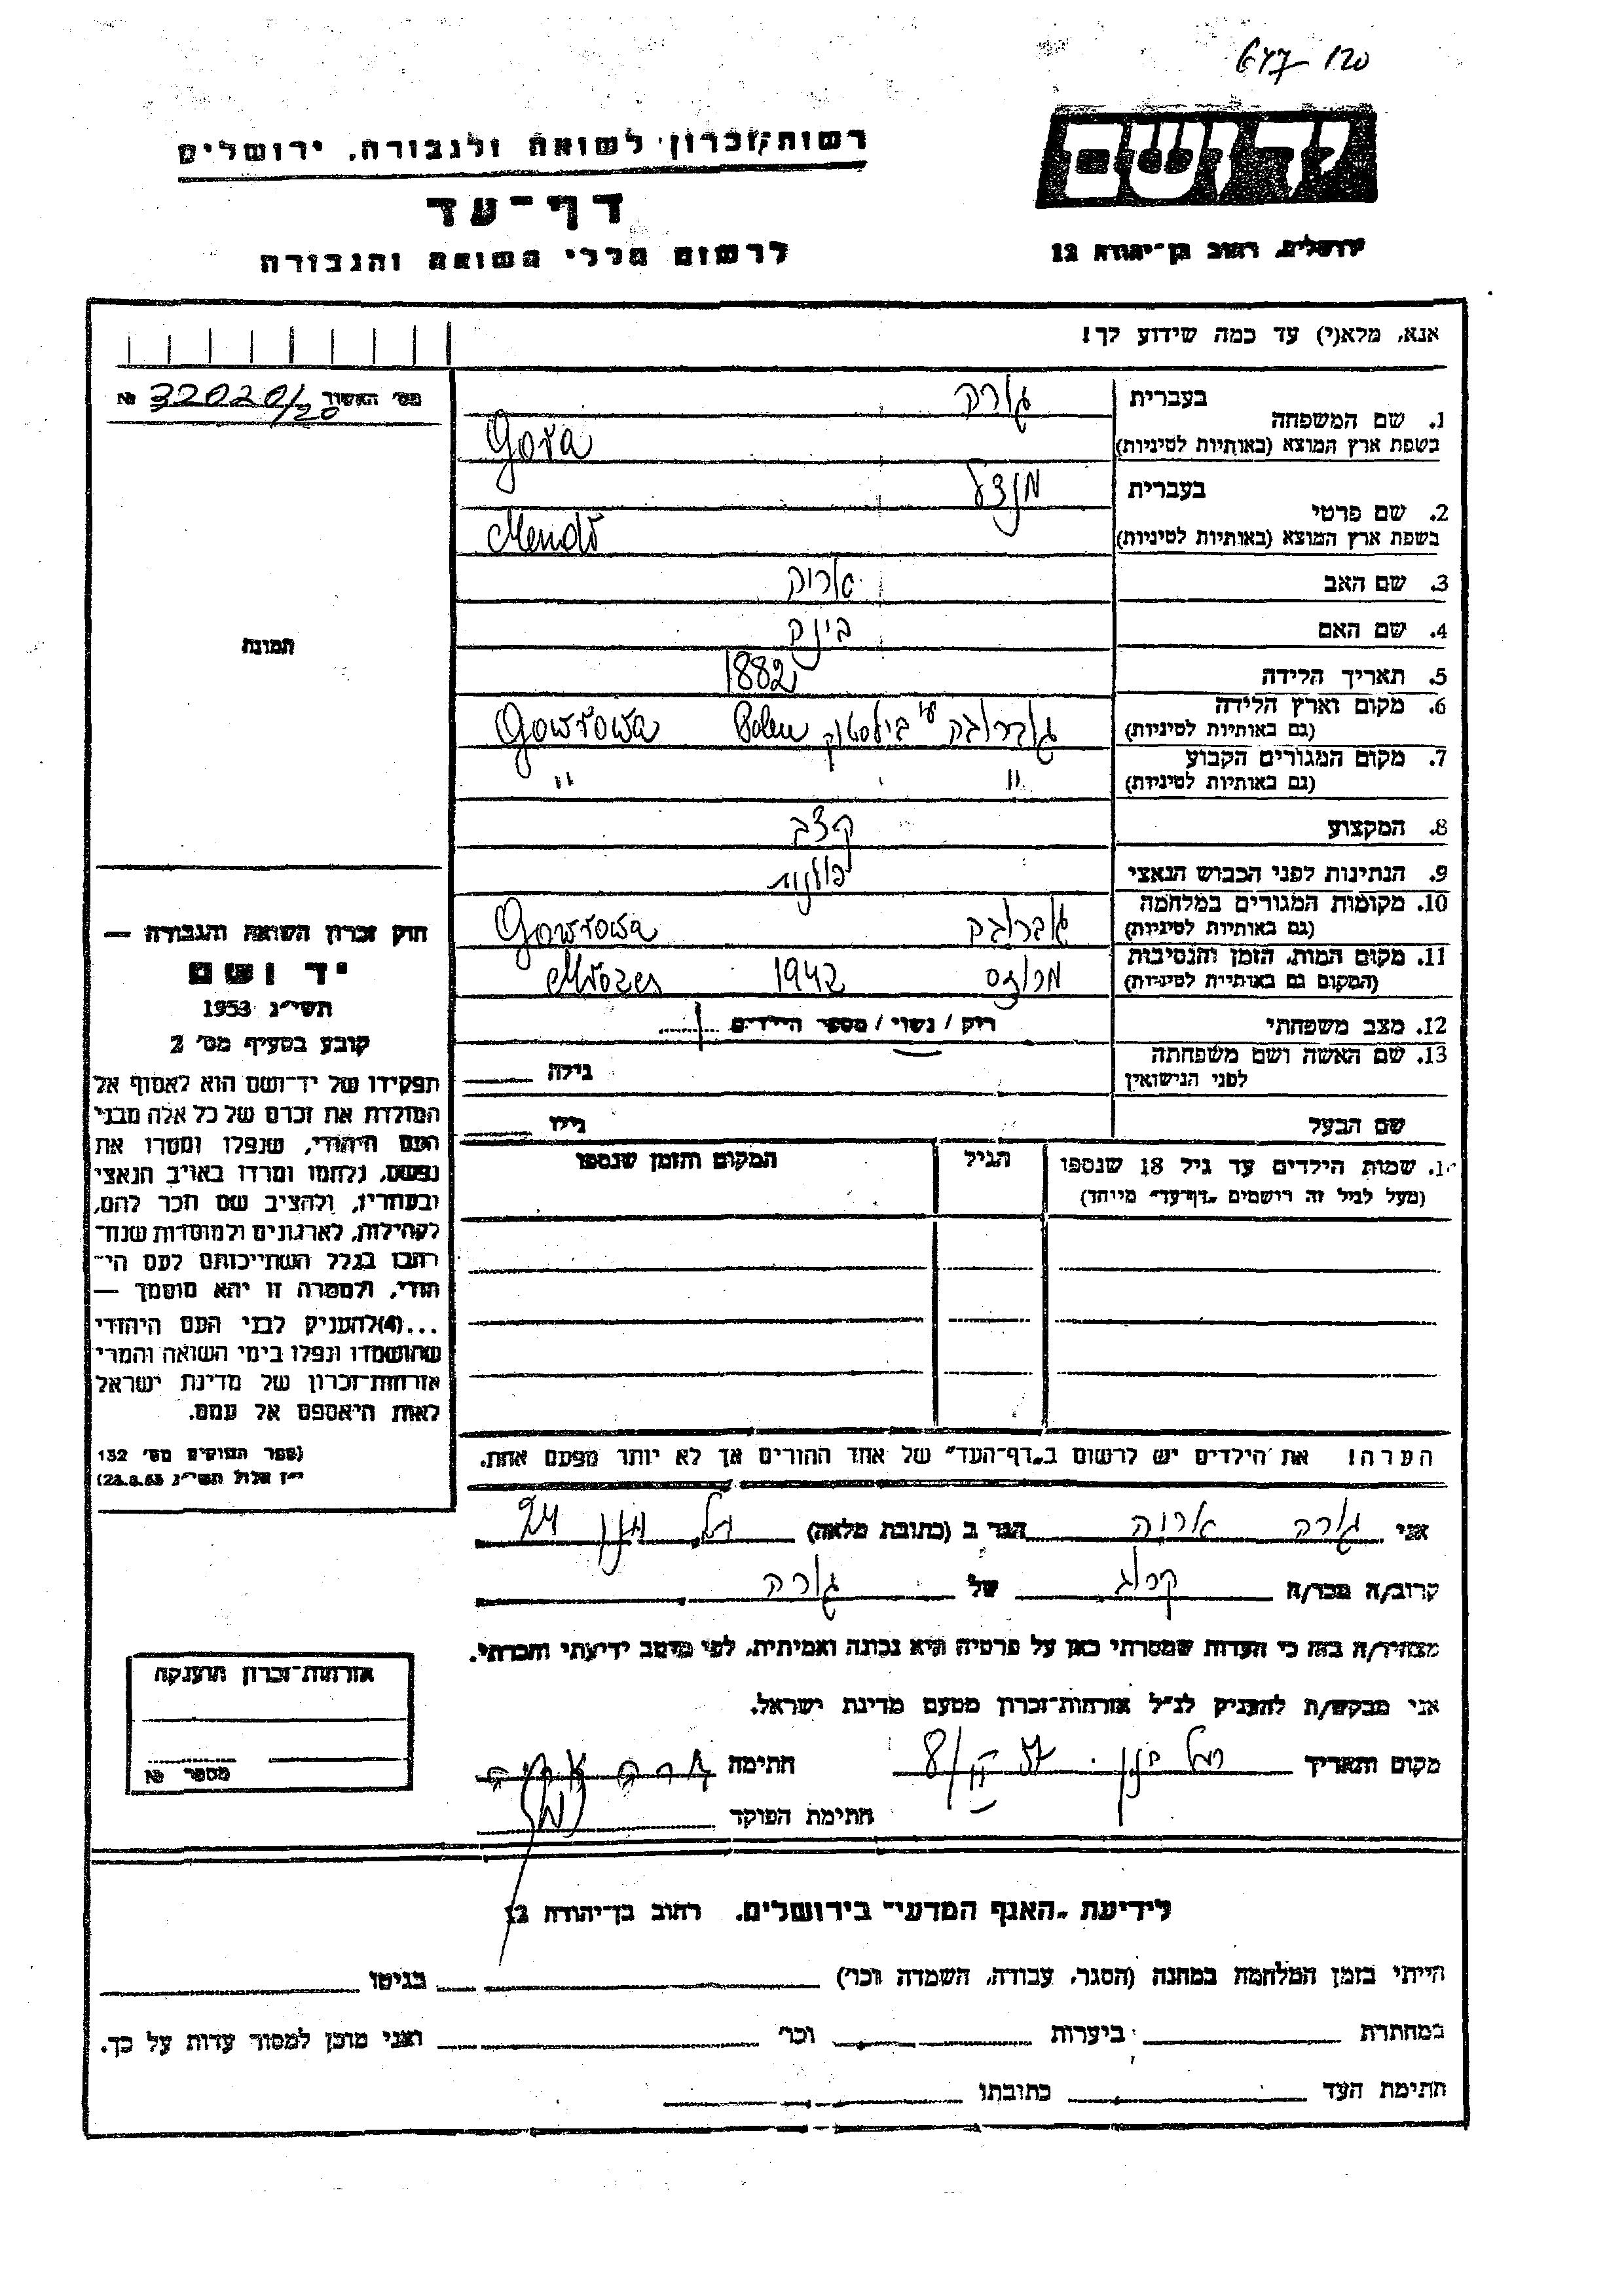 120
יד ושם
רשות־זכרון לשואה ולגבורה, ירושלים
דף־עד
לרשום חללי השואה והגבורה
ירושלים, רחוב בן־יהודה 12
אנא, מלא(י) עד כמה שידוע לך!
מס׳ האשור 32020/20 №
בעברית גורה
1. שם המשפחה
בשפת ארץ המוצא (באותיות לטיניות) Gora
בעברית מנדל
2. שם פרטי
בשפת ארץ המוצא (באותיות לטיניות) Mendl
3. שם האב
4. שם האם
5. תאריך הלידה 1882
6. מקום וארץ הלידה
(גם באותיות לטיניות) גוברובה ביליסטוק Polen Gowrowa
7. מקום המגורים הקבוע
(גם באותיות לטיניות) " "
8. המקצוע קצב
9. הנתינות לפני הכבוש הנאצי פולנית
10. מקומות המגורים במלחמה
(גם באותיות לטיניות) גוברובה Gowrowa
11. מקום המות, הזמן והנסיבות
(המקום גם באותיות לטיניות) 1942
12. מצב משפחתי רוק / נשוי / מספר הילדים
13. שם האשה ושם משפחתה
לפני הנישואין גילה
שם הבעל גילו
תמונה
חוק זכרון השואה והגבורה —
יד ושם
תשי״ג 1953
קובע בסעיף מס׳ 2
תפקידו של יד־ושם הוא לאסוף אל
המולדת את זכרם של כל אלה מבני
העם היהודי, שנפלו ומסרו את
נפשם, נלחמו ומרדו באויב הנאצי
ובעוזריו, ולהציב שם וזכר להם,
לקהילות, לארגונים ולמוסדות שנח־
רבו בגלל השתייכותם לעם הי־
הודי, ולמטרה זו יהא מוסמך —
...(4) להעניק לבני העם היהודי
שהושמדו ונפלו בימי השואה והמרי
אזרחות־זכרון של מדינת ישראל
לאות היאספם אל עמם.
(ספר החוקים מס׳ 132
י״ז אלול תשי״ג 28.8.53)
14. שמות הילדים עד גיל 18 שנספו
(מעל לגיל זה רושמים „דף־עד״ מיוחד)
הגיל
המקום והזמן שנספו
הערה! את הילדים יש לרשום ב„דף־העד״ של אחד ההורים אך לא יותר מפעם אחת.
אני גורה אריה הגר ב (כתובת מלאה) רמת גן 24
קרוב/ה מכר/ה קרוב של גורה
מצהיר/ה בזה כי העדות שמסרתי כאן על פרטיה היא נכונה ואמיתית, לפי מיטב ידיעתי והכרתי.
אני מבקש/ת להעניק לנ״ל אזרחות־זכרון מטעם מדינת ישראל.
מקום ותאריך רמת גן חתימה גורה אריה
חתימת הפוקד
אזרחות־זכרון הוענקה
מספר №
לידיעת „האגף המדעי״ בירושלים, רחוב בן־יהודה 12
הייתי בזמן המלחמה במחנה (הסגר, עבודה, השמדה וכו׳) בגיטו
במחתרת ביערות וכו׳ ואני מוכן למסור עדות על כך.
חתימת העד כתובתו